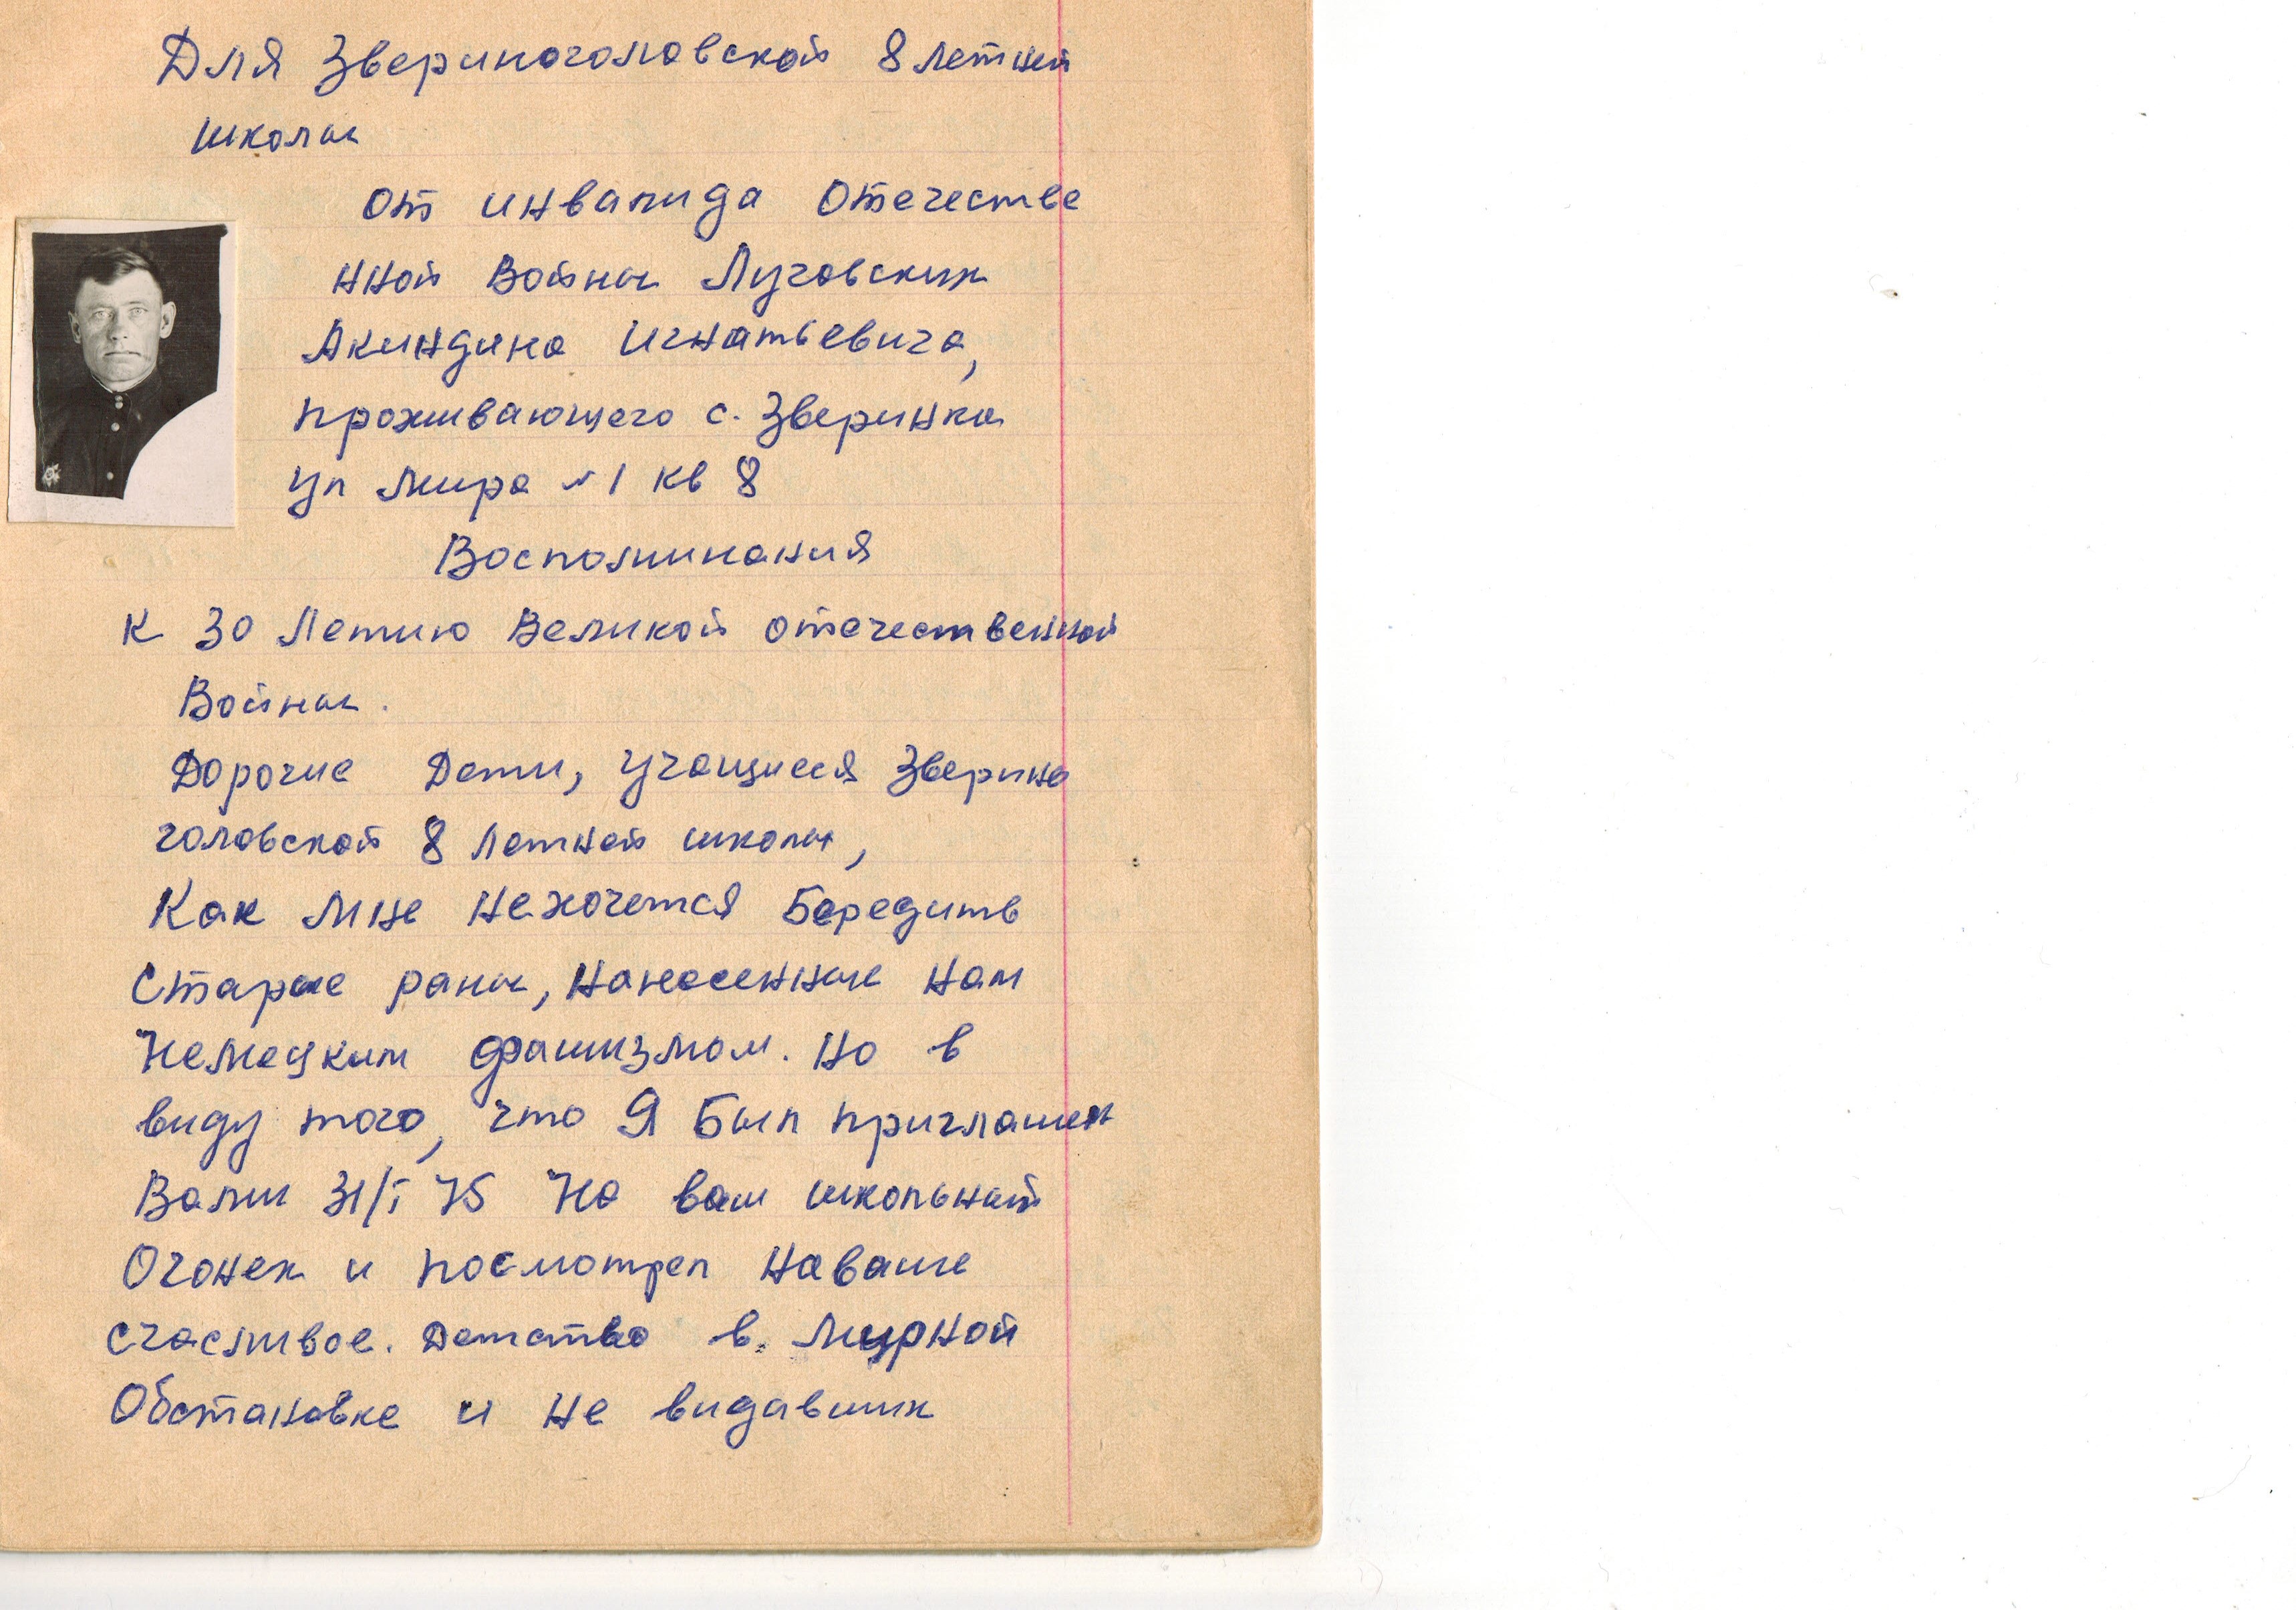 Для Звериноголовской 8 летней
школы
от инвалида Отечестве
нной Войны Луговских
Акиндина Игнатьевича,
проживающего с. Зверинка
ул Мира №1 кв 8
Воспоминания
к 30 Летию Великой отечественной
Войны.
Дорогие Дети, учащиеся Зверино
головской 8 летней школы,
Как мне нехочется Бередить
Старые раны, нанесенные нам
Немецким фашизмом. но в
виду того, что Я Был приглашен
Вами 31/I 75 На ваш школьный
Огонек и посмотрел наваше
счаствое. Детство в. Мирной
Обстановке и не видавших